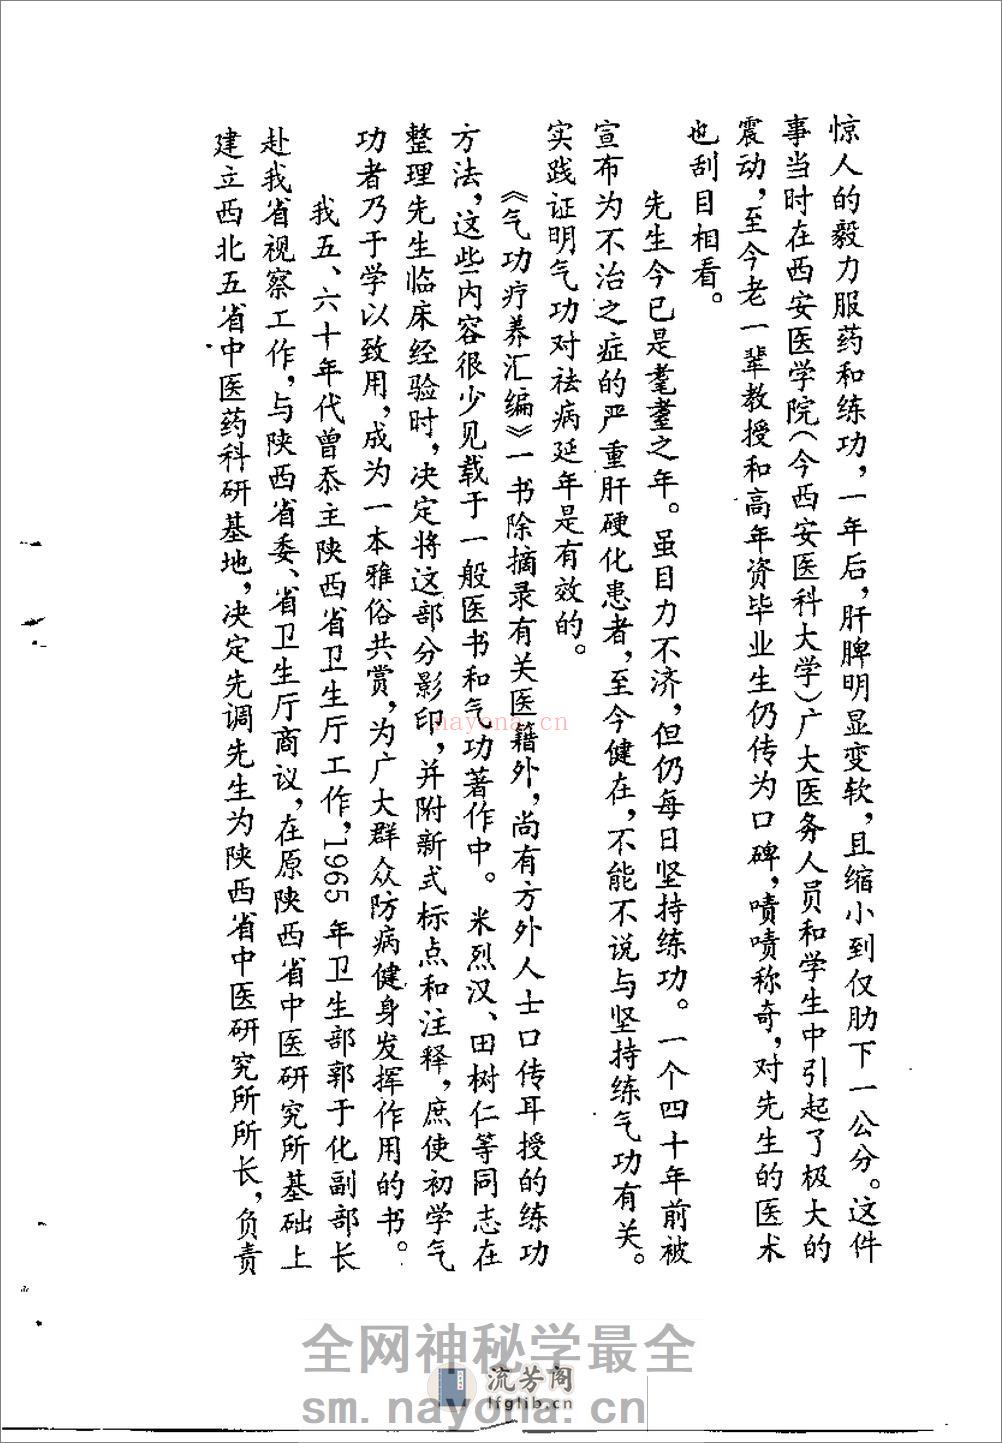 惊人的毅力服药和练功，一年后，肝脾明显变软，且缩小到仅肋下一公分。这件
事当时在西安医学院（今西安医科大学）广大医务人员和学生中引起了极大的
震动，至今老一辈教授和高年资毕业生仍传为口碑，啧啧称奇，对先生的医术
也刮目相看。
先生今已是耄耋之年。虽目力不济，但仍每日坚持练功。一个四十年前被
宣布为不治之症的严重肝硬化患者，至今健在，不能不说与坚持练气功有关。
实践证明气功对祛病延年是有效的。
《气功疗养汇编》一书除摘录有关医籍外，尚有方外人士口传耳授的练功
方法，这些内容很少见载于一般医书和气功著作中。米烈汉、田树仁等同志在
整理先生临床经验时，决定将这部分影印，并附新式标点和注释，庶使初学气
功者乃于学以致用，成为一本雅俗共赏，为广大群众防病健身发挥作用的书。
我五、六十年代曾忝主陕西省卫生厅工作，1965年卫生部郭子化副部长
赴我省视察工作，与陕西省委、省卫生厅商议，在原陕西省中医研究所基础上
建立西北五省中医药科研基地，决定先调先生为陕西省中医研究所所长，负责
nayona.cn
全网神秘学最全
流芳阁
lfglib.cn
sm.nayona.cn